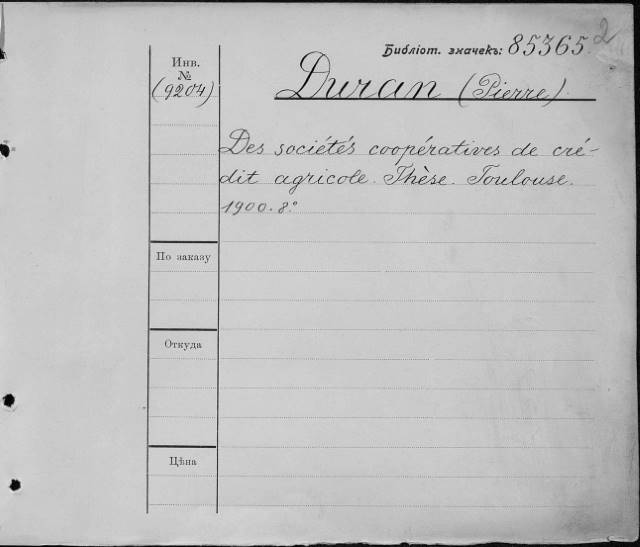 2
Библіот. значекъ: 85365
Инв.
№
(9204)
Duran (Pierre).
Des sociétés coopératives de cré-
dit agricole. Thèse. Toulouse.
1900. 8.°
По заказу
Откуда
Цѣна